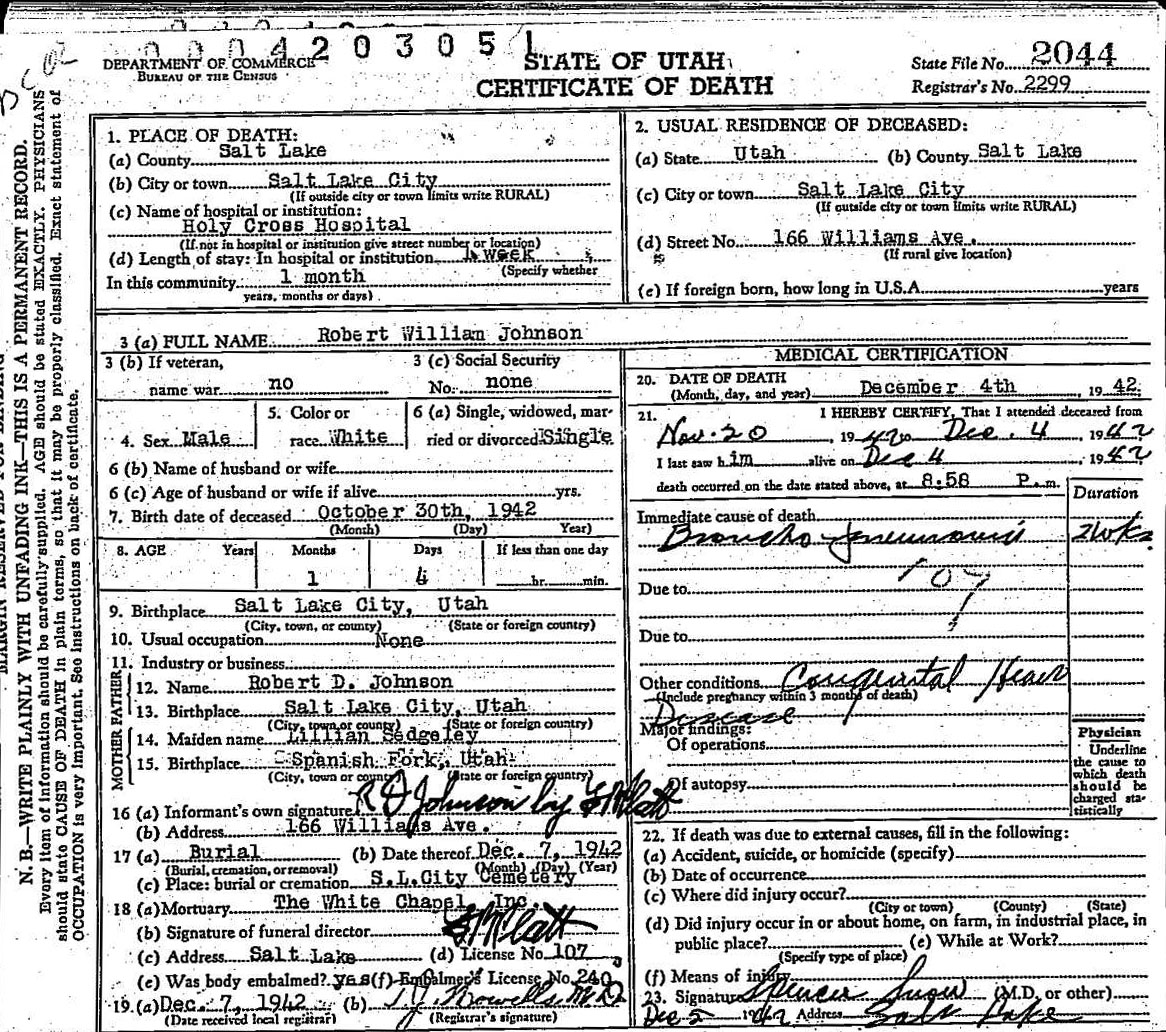 0 0 0 4 2 0 3 0 5 1
DEPARTMENT OF COMMERCE
BUREAU OF THE CENSUS
STATE OF UTAH
CERTIFICATE OF DEATH
State File No. 2044
Registrar's No. 2299
MARGIN RESERVED FOR BINDING
N. B.—WRITE PLAINLY WITH UNFADING INK—THIS IS A PERMANENT RECORD.
Every item of information should be carefully supplied. AGE should be stated EXACTLY. PHYSICIANS
should state CAUSE OF DEATH in plain terms, so that it may be properly classified. Exact statement of
OCCUPATION is very important. See instructions on back of certificate.
1. PLACE OF DEATH:
(a) County Salt Lake
(b) City or town Salt Lake City
(If outside city or town limits write RURAL)
(c) Name of hospital or institution:
Holy Cross Hospital
(If not in hospital or institution give street number or location)
(d) Length of stay: In hospital or institution 1 week
(Specify whether
In this community 1 month
years, months or days)
2. USUAL RESIDENCE OF DECEASED:
(a) State Utah (b) County Salt Lake
(c) City or town Salt Lake City
(If outside city or town limits write RURAL)
(d) Street No. 166 Williams Ave.
(If rural give location)
(e) If foreign born, how long in U.S.A. years
3 (a) FULL NAME Robert Willian Johnson
3 (b) If veteran,
name war no
3 (c) Social Security
No. none
4. Sex Male
5. Color or
race White
6 (a) Single, widowed, mar-
ried or divorced Single
6 (b) Name of husband or wife
6 (c) Age of husband or wife if alive yrs.
7. Birth date of deceased October 30th, 1942
(Month) (Day) Year)
8. AGE Years Months Days If less than one day
1 4 hr. min.
9. Birthplace Salt Lake City, Utah
(City, town, or county) (State or foreign country)
10. Usual occupation None
11. Industry or business
FATHER
12. Name Robert D. Johnson
13. Birthplace Salt Lake City, Utah
(City, town or county) (State or foreign country)
MOTHER
14. Maiden name Lillian Sedgeley
15. Birthplace Spanish Fork, Utah
(City, town or county) (State or foreign country)
16 (a) Informant's own signature R D Johnson by
(b) Address 166 Williams Ave.
17 (a) Burial (b) Date thereof Dec. 7, 1942
(Burial, cremation, or removal) (Month) (Day) (Year)
(c) Place: burial or cremation S.L.City Cemetery
18 (a) Mortuary The White Chapel, Inc.
(b) Signature of funeral director
(c) Address Salt Lake (d) License No. 107
(e) Was body embalmed? yes (f) Embalmer's License No. 240
19. (a) Dec. 7, 1942 (b)
(Date received local registrar) (Registrar's signature)
MEDICAL CERTIFICATION
20. DATE OF DEATH
(Month, day, and year) December 4th, 1942.
21. I HEREBY CERTIFY, That I attended deceased from
Nov. 20, 1942 to Dec. 4, 1942
I last saw him alive on Dec 4, 1942
death occurred on the date stated above, at 8:58 P.m.
Duration
Immediate cause of death
Broncho-pneumonia 2 wks
107
Due to
Due to
Other conditions Congenital Heart
(Include pregnancy within 3 months of death)
Disease
Major findings:
Of operations
Of autopsy
Physician
Underline
the cause to
which death
should be
charged sta-
tistically
22. If death was due to external causes, fill in the following:
(a) Accident, suicide, or homicide (specify)
(b) Date of occurrence
(c) Where did injury occur?
(City or town) (County) (State)
(d) Did injury occur in or about home, on farm, in industrial place, in
public place? (e) While at Work?
(Specify type of place)
(f) Means of injury
23. Signature Spencer (M.D. or other)
Dec 5 1942 Address Salt Lake